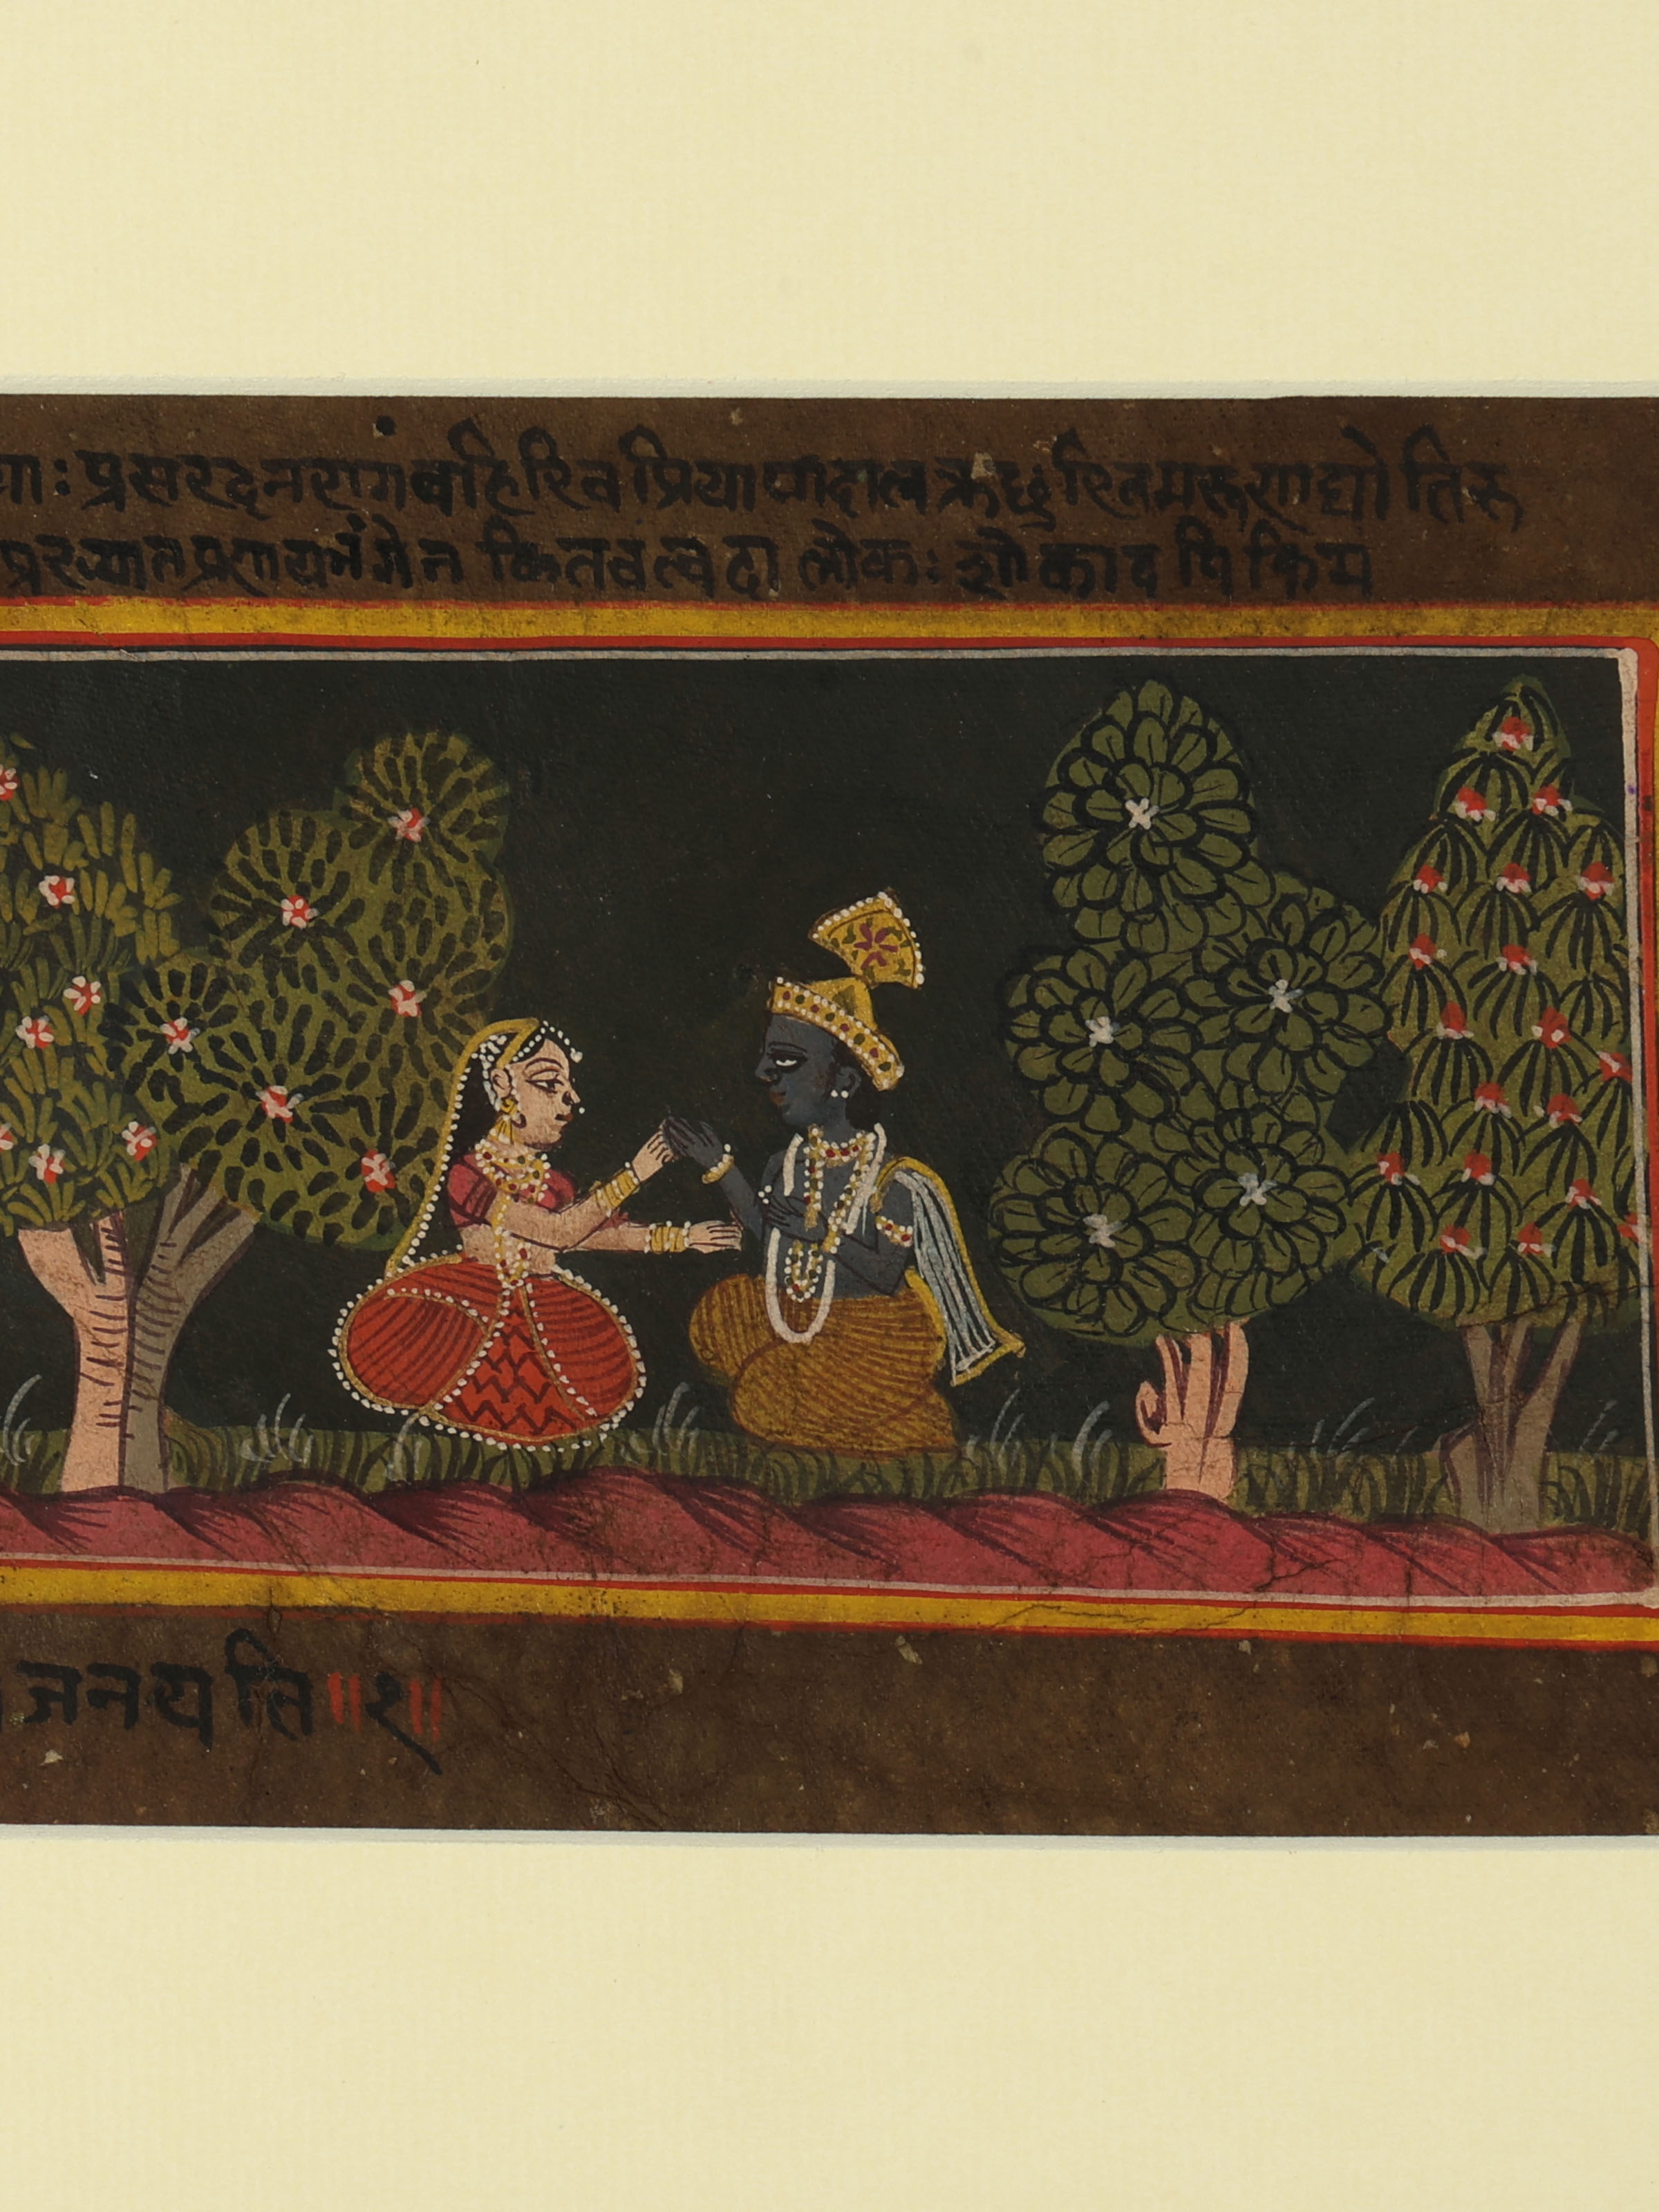 याः प्रसरदनुरागं बहिरिव प्रियापादालक्तछुरितमरूणद्योतिरू
प्रख्यातप्रणयभंगेन कितव त्वदालोकः शोकादपि किम
जनयति ॥१॥